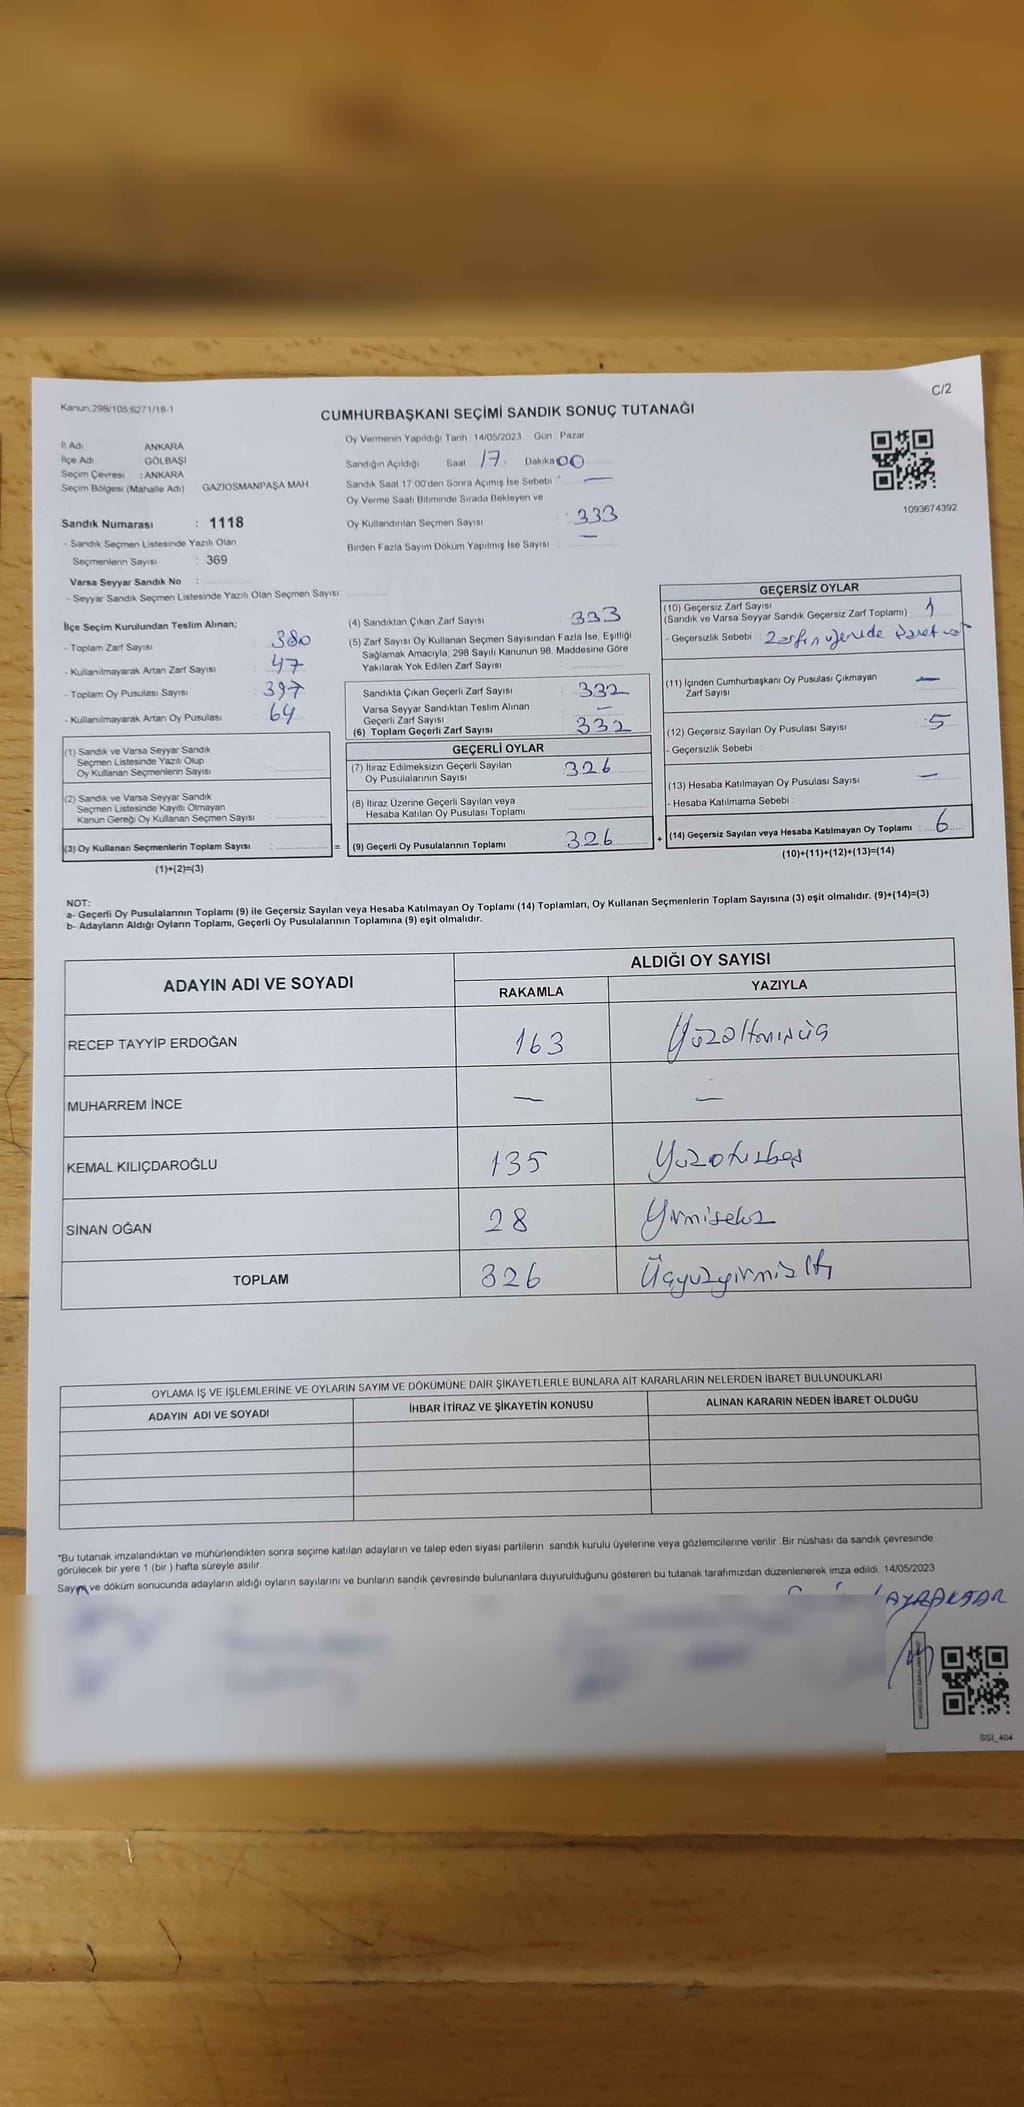 C/2
Kanun:298/105;6271/18-1
CUMHURBAŞKANI SEÇİMİ SANDIK SONUÇ TUTANAĞI
İl Adı ANKARA
İlçe Adı GÖLBAŞI
Seçim Çevresi : ANKARA
Seçim Bölgesi (Mahalle Adı) GAZİOSMANPAŞA MAH
Oy Vermenin Yapıldığı Tarih : 14/05/2023 Gün : Pazar
Sandığın Açıldığı Saat 17 Dakika 00
Sandık Saat 17:00'den Sonra Açımış İse Sebebi : —
Oy Verme Saati Bitiminde Sırada Bekleyen ve
Oy Kullandırılan Seçmen Sayısı : 333
Birden Fazla Sayım Döküm Yapılmış İse Sayısı : —
1093674392
Sandık Numarası : 1118
- Sandık Seçmen Listesinde Yazılı Olan
Seçmenlerin Sayısı : 369
Varsa Seyyar Sandık No :
- Seyyar Sandık Seçmen Listesinde Yazılı Olan Seçmen Sayısı:
İlçe Seçim Kurulundan Teslim Alınan;
- Toplam Zarf Sayısı : 380
- Kullanılmayarak Artan Zarf Sayısı : 47
- Toplam Oy Pusulası Sayısı : 397
- Kullanılmayarak Artan Oy Pusulası : 64
(1) Sandık ve Varsa Seyyar Sandık
Seçmen Listesinde Yazılı Olup
Oy Kullanan Seçmenlerin Sayısı :
(2) Sandık ve Varsa Seyyar Sandık
Seçmen Listesinde Kayıtlı Olmayan
Kanun Gereği Oy Kullanan Seçmen Sayısı :
(3) Oy Kullanan Seçmenlerin Toplam Sayısı : =
(1)+(2)=(3)
(4) Sandıktan Çıkan Zarf Sayısı : 333
(5) Zarf Sayısı Oy Kullanan Seçmen Sayısından Fazla İse, Eşitliği
Sağlamak Amacıyla; 298 Sayılı Kanunun 98. Maddesine Göre
Yakılarak Yok Edilen Zarf Sayısı :
Sandıkta Çıkan Geçerli Zarf Sayısı : 332
Varsa Seyyar Sandıktan Teslim Alınan
Geçerli Zarf Sayısı : —
(6) Toplam Geçerli Zarf Sayısı : 332
GEÇERLİ OYLAR
(7) İtiraz Edilmeksizin Geçerli Sayılan
Oy Pusulalarının Sayısı : 326
(8) İtiraz Üzerine Geçerli Sayılan veya
Hesaba Katılan Oy Pusulası Toplamı :
(9) Geçerli Oy Pusulalarının Toplamı : 326 +
GEÇERSİZ OYLAR
(10) Geçersiz Zarf Sayısı
(Sandık ve Varsa Seyyar Sandık Geçersiz Zarf Toplamı) : 1
- Geçersizlik Sebebi : Zarfın üzerinde işaret var
(11) İçinden Cumhurbaşkanı Oy Pusulası Çıkmayan
Zarf Sayısı : —
(12) Geçersiz Sayılan Oy Pusulası Sayısı : 5
- Geçersizlik Sebebi :
(13) Hesaba Katılmayan Oy Pusulası Sayısı : —
- Hesaba Katılmama Sebebi :
(14) Geçersiz Sayılan veya Hesaba Katılmayan Oy Toplamı : 6
(10)+(11)+(12)+(13)=(14)
NOT:
a- Geçerli Oy Pusulalarının Toplamı (9) ile Geçersiz Sayılan veya Hesaba Katılmayan Oy Toplamı (14) Toplamları, Oy Kullanan Seçmenlerin Toplam Sayısına (3) eşit olmalıdır. (9)+(14)=(3)
b- Adayların Aldığı Oyların Toplamı, Geçerli Oy Pusulalarının Toplamına (9) eşit olmalıdır.
ADAYIN ADI VE SOYADI
ALDIĞI OY SAYISI
RAKAMLA YAZIYLA
RECEP TAYYİP ERDOĞAN 163 Yüzaltmışüç
MUHARREM İNCE — —
KEMAL KILIÇDAROĞLU 135 Yüzotuzbeş
SİNAN OĞAN 28 Yirmisekiz
TOPLAM 326 Üçyüzyirmialtı
OYLAMA İŞ VE İŞLEMLERİNE VE OYLARIN SAYIM VE DÖKÜMÜNE DAİR ŞİKAYETLERLE BUNLARA AİT KARARLARIN NELERDEN İBARET BULUNDUKLARI
ADAYIN ADI VE SOYADI İHBAR İTİRAZ VE ŞİKAYETİN KONUSU ALINAN KARARIN NEDEN İBARET OLDUĞU
*Bu tutanak imzalandıktan ve mühürlendikten sonra seçime katılan adayların ve talep eden siyasi partilerin sandık kurulu üyelerine veya gözlemcilerine verilir. Bir nüshası da sandık çevresinde
görülecek bir yere 1 (bir ) hafta süreyle asılır.
Sayım ve döküm sonucunda adayların aldığı oyların sayılarını ve bunların sandık çevresinde bulunanlara duyurulduğunu gösteren bu tutanak tarafımızdan düzenlenerek imza edildi. 14/05/2023
SSI_404